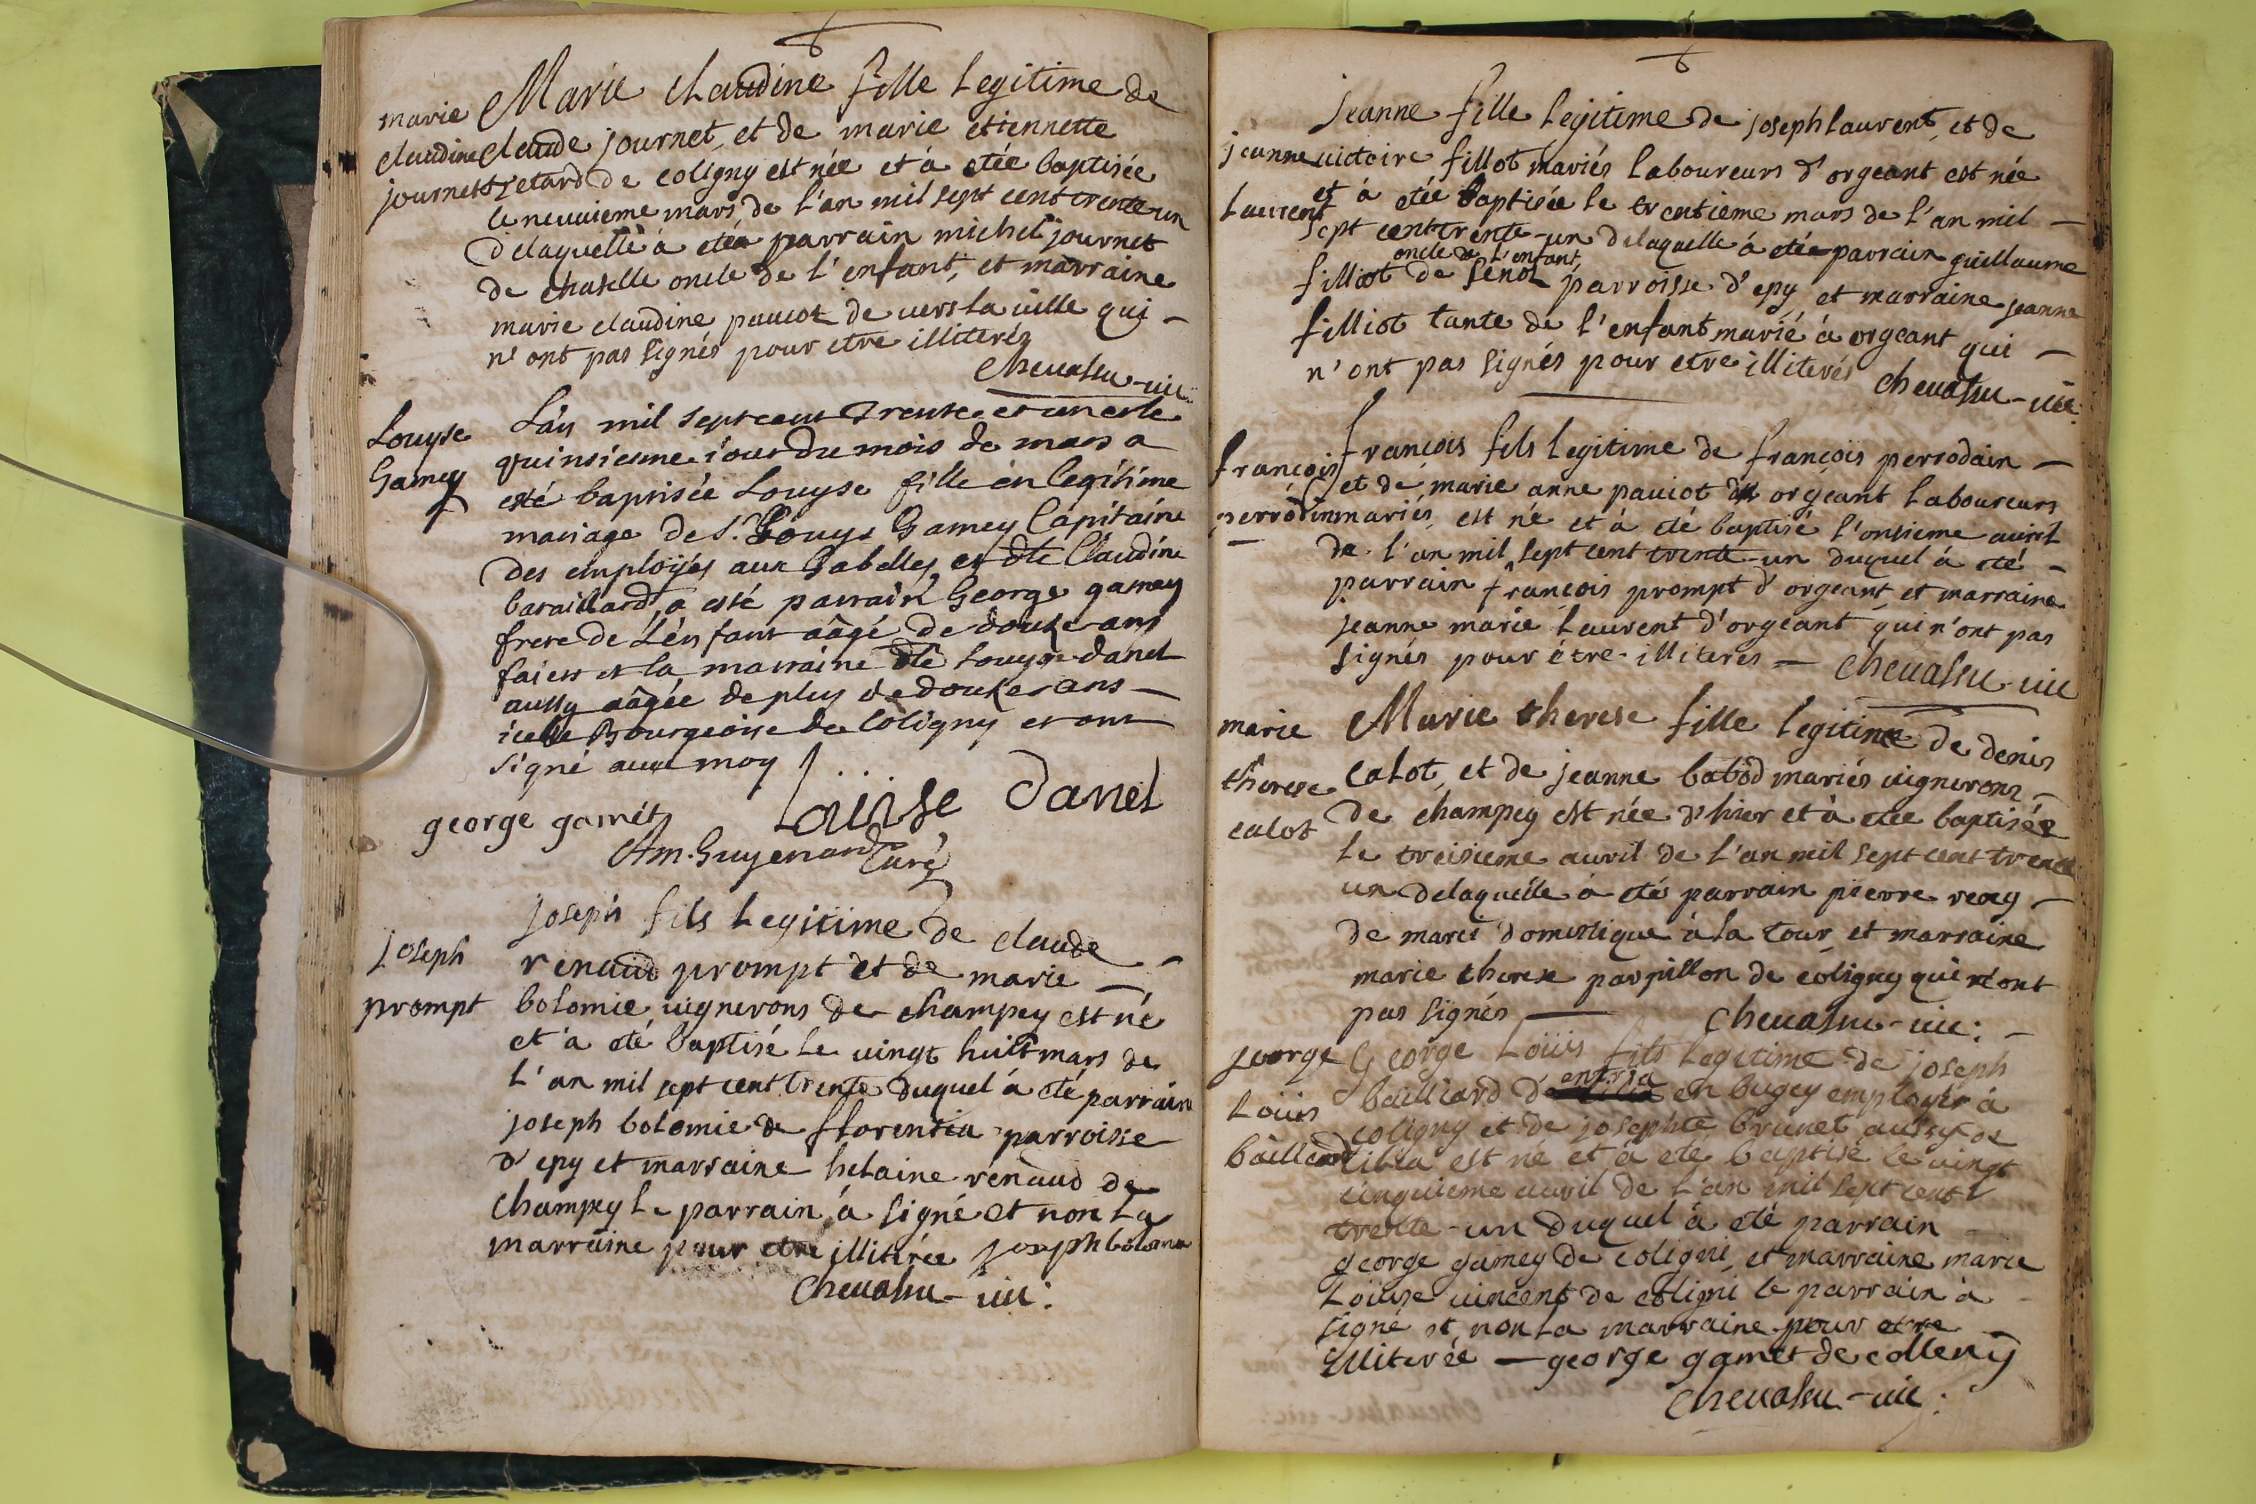 Marie claudine fille Legitime de
marie
claude journet, et de marie etiennette
claudine
de coligny est née et à etée baptisée
journet
le neuvieme mars de l'an mil sept cent trente un
delaquelle à etée parrain michel journet
de chaselle oncle de l'enfant, et marraine
marie claudine pauiot de uers la uille qui -
n'ont pas signés pour etre illiterés
cheuassu - uic:
L'an mil sept cent trente et un et le
Louyse
quinsiesme iour du mois de mars a
Gamey
esté baptisée Louyse fille en legitime
mariage de Sr. Louys Gamey Capitaine
des employés aux Gabelles et dlle Claudine
barailliard, a esté parrain George gamey
frere de L'enfant aâgé de douze ans
faicts et la marraine dlle Louyse danet
aussy aâgée de plus de douze ans -
icelle Bourgeoise de Coligny et ont
signé auec moy
Louise Danet
george gamét
Am. Guyenard Curé
joseph fils Legitime de claude -
joseph
renaud prompt et de marie -
prompt
bolomie uignerons de champey est né
et à eté baptisé le uingt huit mars de
L'an mil sept cent trente duquel à eté parrain
joseph bolomie de florentia parroisse
d'epy et marraine helaine renaud de
champey le parrain à signé et non la
marraine pour etre illiterée joseph bolomie
cheuassu - uic:
jeanne fille legitime de joseph laurent, et de
jeanne
uictoire fillot mariés laboureurs d'orgeant est née
Laurent
et à etée baptisée le trentieme mars de l'an mil -
sept cent trente-un delaquelle à etée parrain guillaume
oncle de l'enfant,
filliot de senot parroisse d'epy et marraine jeanne
filliot tante de l'enfant marié à orgeant qui -
n'ont pas signés pour etre illiterés
cheuassu - uic:
françois fils legitime de françois perrodain -
françois
et de marie anne pauiot d' orgeant laboureurs
perrodin
mariés, est né et à eté baptisé l'onsieme auril
de l'an mil sept cent trente-un duquel à eté -
parrain françois prompt d'orgeant, et marraine
jeanne marie laurent d'orgeant qui n'ont pas
signés pour étre illiteres - cheuassu - uic
Marie therese fille legitime de denis
marie
calot, et de jeanne babod mariés uignerons -
therese
de champey est née d'hier et à etée baptisée
calot
le treisieme auril de l'an mil sept cent trente
un delaquelle à etés parrain pierre reny -
de domestique à la tour, et marraine
marie therese parpillon de coligny qui n'ont
pas signés - cheuassu - uic: -
George Loüis fils legitime de joseph
george
entria
bailliard d' en bugey employér à
Loüis
coligny et de josephte brunet aussy de
bailliard
est né et à eté baptisé le uingt
cinquieme auril de l'an mil sept cent
trente-un duquel à eté parrain -
george gamey de coligni, et marraine marie
Loüise uincent de coligni le parrain à -
signé et non la marraine pour etre -
illiterée - george gamet de colleny
cheuassu - uic: